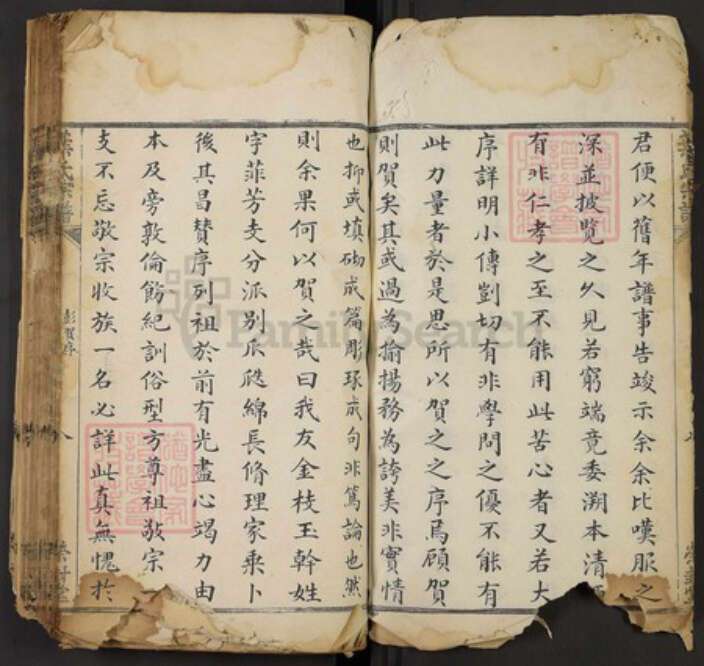 君便以舊年譜事告竣示余余比嘆服之
深並披覽之久見若窮端竟委溯本清
有非仁孝之至不能用此苦心者又若大
序詳明小傳剴切有非學問之優不能有
此力量者於是思所以賀之之序焉顧賀
則賀矣其或過為揄揚務為誇美非實情
也抑或填砌成篇彫琢成句非篤論也然
則余果何以賀之哉曰我友金枝玉幹姓
字菲芳支分派別瓜瓞綿長脩理家乘卜
後其昌贊序列祖於前有光盡心竭力由
本及旁敦倫飭紀訓俗型方尊祖敬宗一
支不忘敬宗收族一名必詳此真無愧於
彭賀序
八
FamilySearch